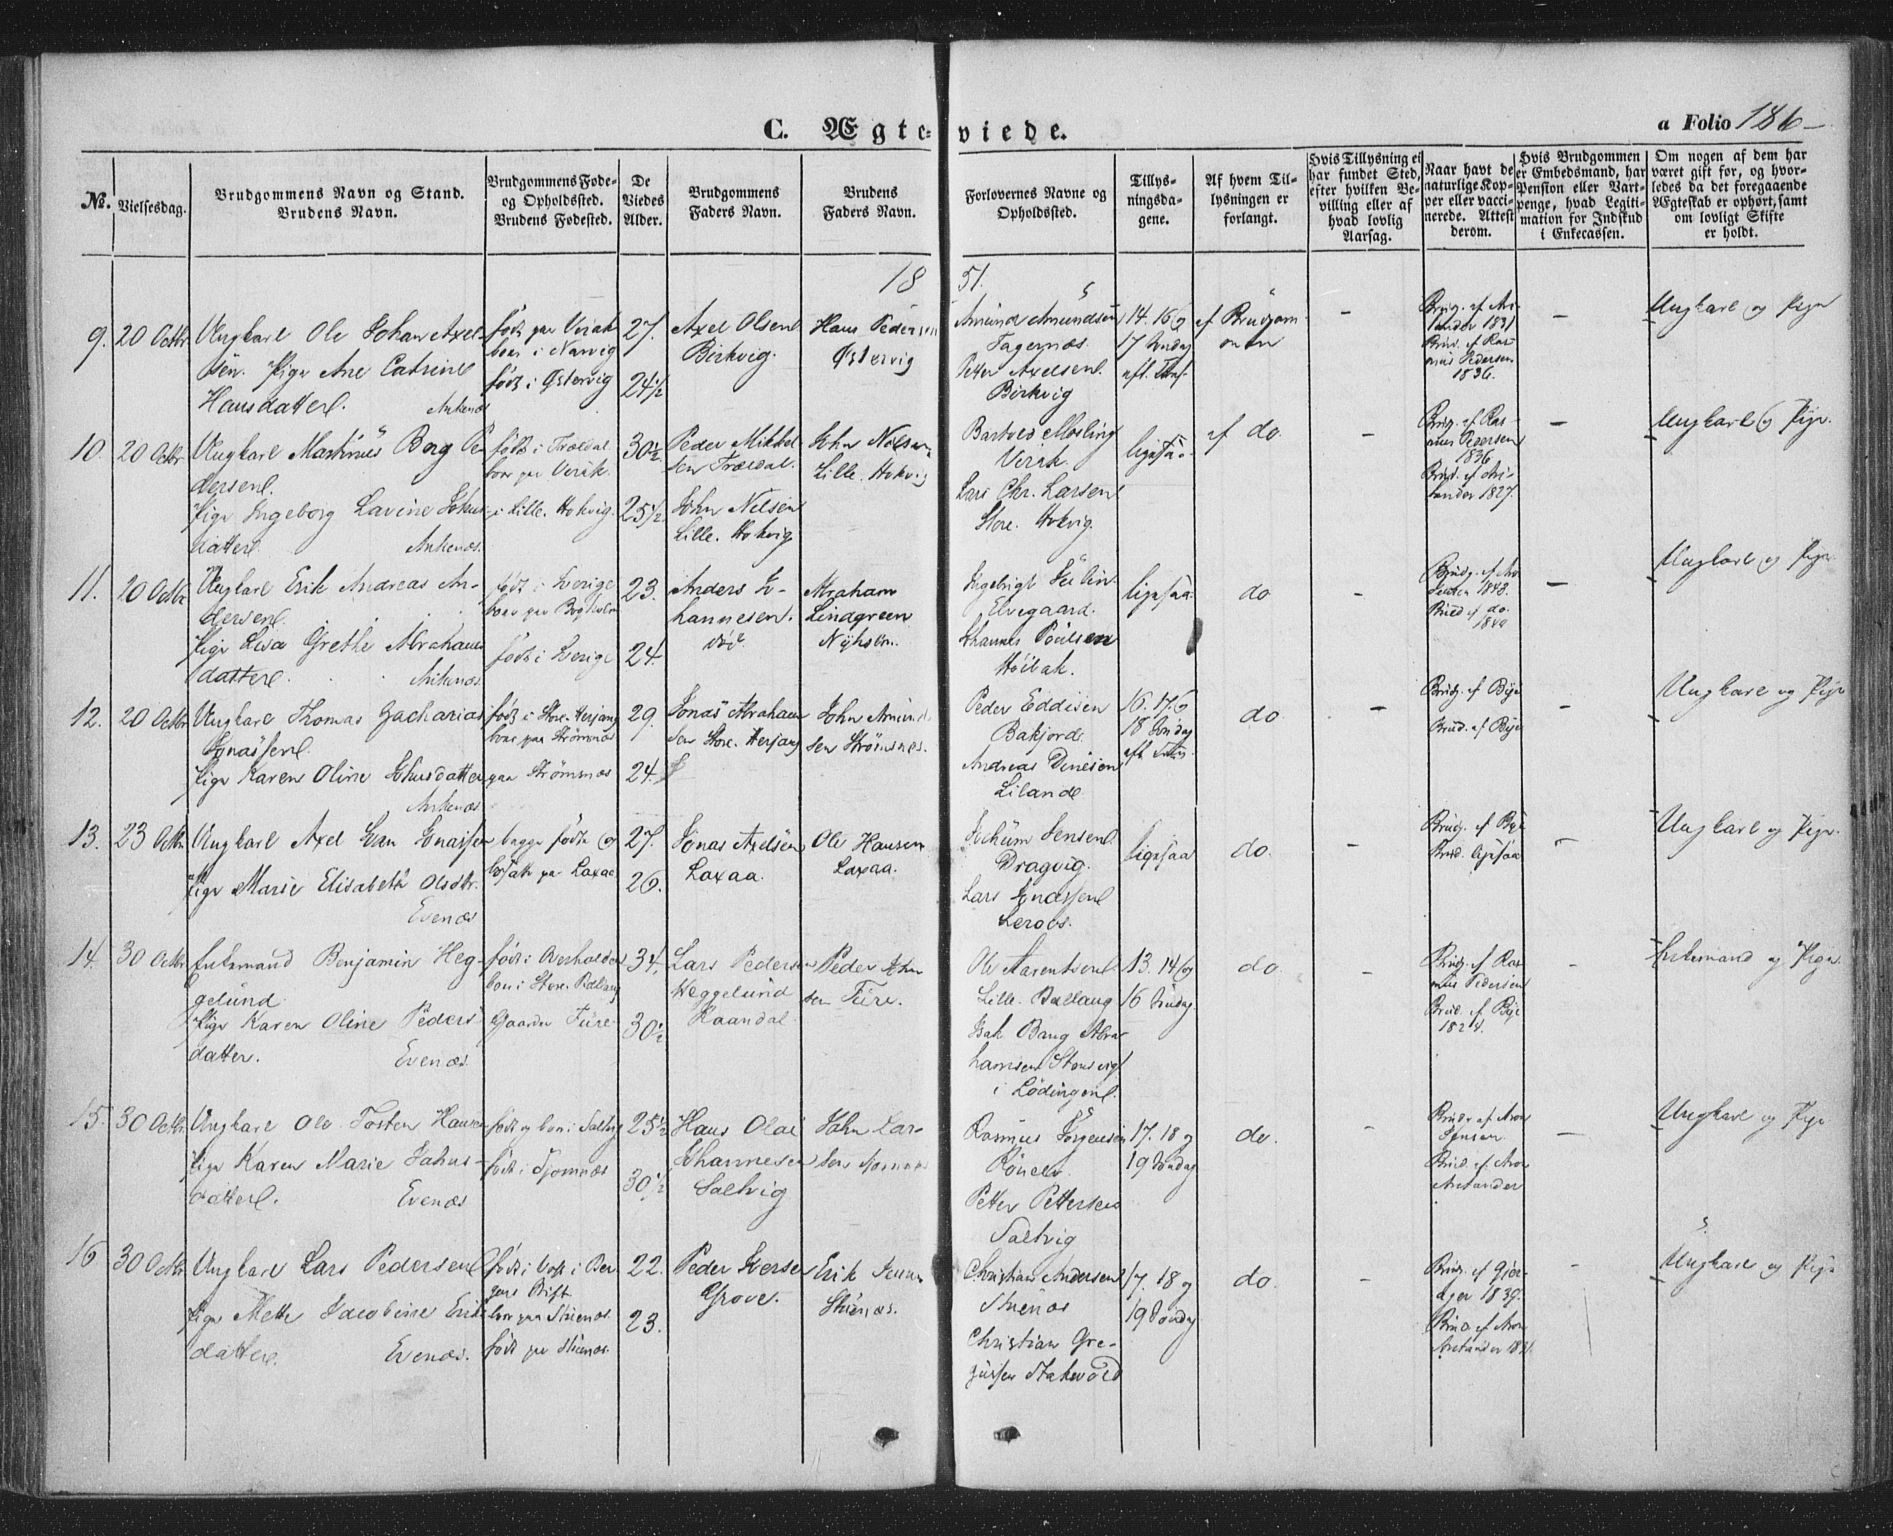 C. Ægte-viede.
a Folio 186
No.
Vielsesdag.
Brudgommens Navn og Stand.
Brudens Navn.
Brudgommens Føde-
og Opholdssted.
Brudens Fødested.
De
Viedes
Alder.
Brudgommens
Faders Navn.
Brudens
Faders Navn.
Forlovernes Navne og
Opholdssted.
Tillys-
ningsda-
gene.
Af hvem Til-
lysningen er
forlangt.
Hvis Tillysning ei
har fundet Sted,
efter hvilken Be-
villing eller af
hvad lovlig
Aarsag.
Naar havt de
naturlige Kop-
per eller vacci-
nerede. Attest
derom.
Hvis Brudgommen
er Embedsmand, har
Pension eller Vart-
penge, hvad Legiti-
mation for Indskud
i Enkecassen.
Om nogen af dem har
været gift før, og hvor-
ledes da det foregaaende
Ægteskab er ophørt, samt
om lovligt Skifte
er holdt.
1851.
9. 20 Octbr.
Ungkarl Ole Johan Axel-
sen. Pige Ane Catrine
Hansdatter. Ankenæs
født paa Virak
boer i Narvig
født i Østervig
27.
24 1/2
Axel Olsen
Birkvig.
Hans Pedersen
Østervig
Amund Amundsen
Fagernæs.
Petter Axelsen
Birkvig
14. 16 og
17 Søndag
eft. Trin.
af Brudgom-
men
-
Brudg. af
1831
Brud. af Ras-
mus Pedersen
1836.
-
Ungkarl og Pige
10. 20 Octbr.
Ungkarl Martinus Berg Pe-
dersen.
Pige Ingeborg Lavine Johns-
datter Ankenæs.
født i Trældal
boer paa Virak.
i Lille-Hokvig.
30 1/2
25 1/2
Peder Mikkel-
sen Trældal.
John Nilsen
Lille-Hokvig
John Nilsen
Lille-Hokvig
Bartved Mosling
Virak.
Lars Chr. Larsen
Store-Hokvig.
ligesaa
af do.
-
Brudg. af Ras-
mus Pedersen
1836
Brud. af
1827.
-
Ungkarl og Pige.
11. 20 Octbr.
Ungkarl Erik Andreas An-
dersen.
Pige Lisa Grethe Abrahams-
datter. Ankenæs
født i Sverige
født i Sverige
23.
24.
Anders Jo-
hannesen.
død
Abraham
Lindgreen
Elvegaard.
Johannes Poulsen
ligesaa
do
-
Brudg. af
1843.
Brud af do.
-
Ungkarl og Pige.
12. 20 Octbr.
Ungkarl Thomas Zacharias
Jonassen.
Pige Karen Oline Johnsdatter
Ankenæs
født i Store-Herjang
boer paa Strømsnæs
paa Strømsnæs
29.
24.
Jonas Abraham-
sen Store-Herjang
John Amund-
sen Strømsnes.
Peder Eddisen
Bakjord.
Andreas Dinesen
Liland
16. 17. og
18 Søndag
eft. Trin.
do
-
Brudg. af Bye
Brud. af Bye
-
Ungkarl og Pige
13. 23 Octbr.
Ungkarl Axel Evan Jonassen
Pige Marie Elisabeth Olsdtr.
Evenæs
begge fødte og
bosatte paa Laxaa
27.
26.
Jonas Axelsen
Laxaa.
Ole Hansen
Laxaa.
Jochum Jensen
Dragvig.
Lars Jonassen
ligesaa
do.
-
Brudg. af Bye
Brud. ligesaa
-
Ungkarl og Pige.
14. 30 Octbr.
Enkemand Benjamin Heg-
gelund
Pige Karen Oline Peders-
datter. Evenæs
født i Overhalden
boer i Store-Ballang
Gaarden Fure
34.
30 1/2
Lars Pedersen
Heggelund
Raandal.
Peder John-
sen Fure.
Ole Aarentsen
Lille-Ballang
Isak Bang Abra-
hamsen
i Lødingen.
13. 14 og
16 Søndag
do
-
Brudg. af Ras-
mus Pedersen
Brud. af Bye
1824.
-
Enkemand og Pige
15. 30 Octbr.
Ungkarl Ole Tosten Hansen
Pige Karen Marie Johns-
datter. Evenæs
født og boer i Saltvig
født i
25 1/2
30 1/2
Hans Olai
Johannesen
Saltvig
John Lar-
sen
Rasmus Jørgensen
Petter Pettersen
Saltvig
17. 18 og
19 Søndag
do.
-
Brudg. af Aron
Jensen
Brud. af Aron
-
Ungkarl og Pige
16 30 Octbr.
Ungkarl Lars Pedersen
Pige Mette Jacobine Eriks-
datter. Evenæs.
født i Voss i Ber-
gens Stift
22.
23.
Peder Iversen
Grove.
Erik Jensen
Christian Andersen
Christian Gre-
gussen
17. 18 og
19 Søndag
do.
-
Brudg. af
1839.
Brud af Aron
-
Ungkarl og Pige